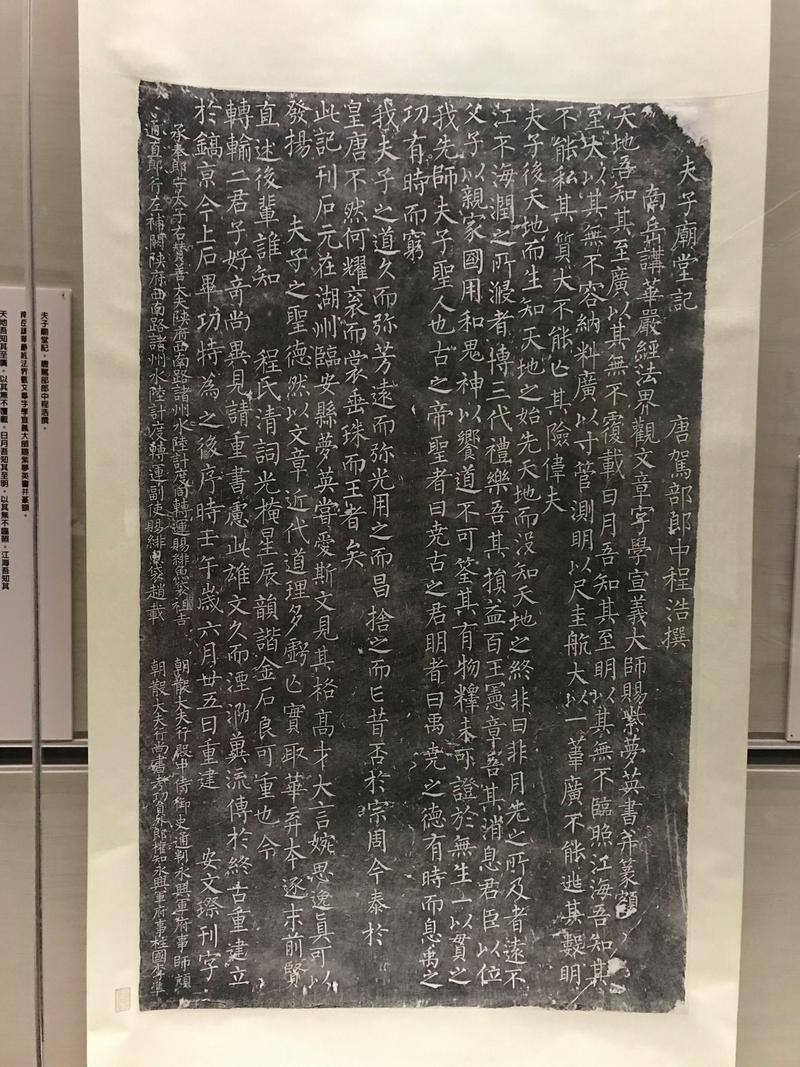 夫子廟堂記 唐駕部郎中程浩撰
南岳講華嚴經法界觀文章字學宣義大師賜紫夢英書并篆額
天地吾知其至廣以其無不覆載日月吾知其至明以其無不臨照江海吾知其
至大以其無不容納料廣以寸管測明以尺圭航大以一葦廣不能逃其數明
不能私其質大不能亡其險偉夫
夫子後天地而生知天地之始先天地而沒知天地之終非日非月光之所及者遠不
江不海潤之所濅者博三代禮樂吾其損益百王憲章吾其消息君臣以位
父子以親家國用和鬼神以饗道不可筌其有物釋未可證於無生一以貫之
我先師夫子聖人也古之帝聖者曰堯古之君明者曰禹堯之德有時而息禹之
功有時而窮
我夫子之道久而弥芳遠而弥光用之而昌捨之而亡昔否於宗周今泰於
皇唐不然何耀衮而裳垂珠而王者矣
此記刊石元在湖州臨安縣夢英嘗愛斯文見其格高才大言婉思逸真可以
發揚 夫子之聖德然以文章近代道理多虧亡實取華弃本逐末前賢
直述後輩誰知 程氏清詞光撗星辰韻諧金石良可重也今
轉輸二君子好奇尚異見請重書慮此雄文久而湮泐兾流傳於終古重建立
於鎬京今上石畢功特為之後序時壬午歲六月廿五日重建 安文璨刊字
承奉郎守太子右贊善大夫陝府西南路諸州水陸計度轉運賜緋魚袋祖吉 朝散大夫行殿中侍御史通判永興軍府事師頏
通直郎行左補闕陝府西南路諸州水陸計度轉運副使賜緋魚袋趙載 朝散大夫行尚書考功員外郎權知永興軍府事柱國李準
夫子廟堂記，唐駕部郎中程浩撰。
南岳講華嚴經法界觀文章字學宣義大師賜紫夢英書并篆額。
天地吾知其至廣，以其無不覆載。日月吾知其至明，以其無不臨照。江海吾知其